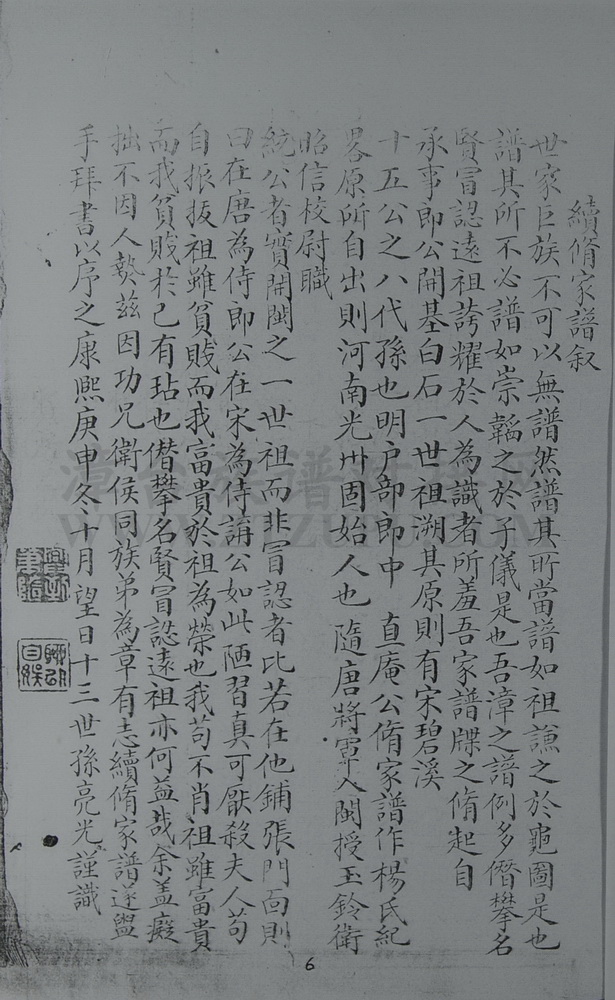 續脩家譜叙
世家巨族不可以無譜然譜其所當譜如祖謙之於龜圖是也
譜其所不必譜如崇韜之於子儀是也吾漳之譜例多僭攀名
賢冒認遠祖誇耀於人為識者所羞吾家譜牒之脩起自
承事郎公開基白石一世祖溯其原則有宋碧溪
十五公之八代孫也明户部郎中 直庵公脩家譜作楊氏紀
畧原所自出則河南光州固始人也隨唐將軍入閩授玉鈴衛
昭信校尉職
統公者實開閩之一世祖而非冒認者比若在他鋪張門面則
曰在唐為侍郎公在宋為侍講公如此陋習真可厭殺夫人苟
自振拔祖雖貧賤而我富貴於祖為榮也我苟不肖祖雖富貴
而我貧賤於己有玷也僭攀名賢冒認遠祖亦何益哉余盖癡
拙不因人熱茲因功兄衛侯同族弟為章有志續脩家譜遂盥
手拜書以序之康熙庚申冬十月望日十三世孫亮光謹識
6